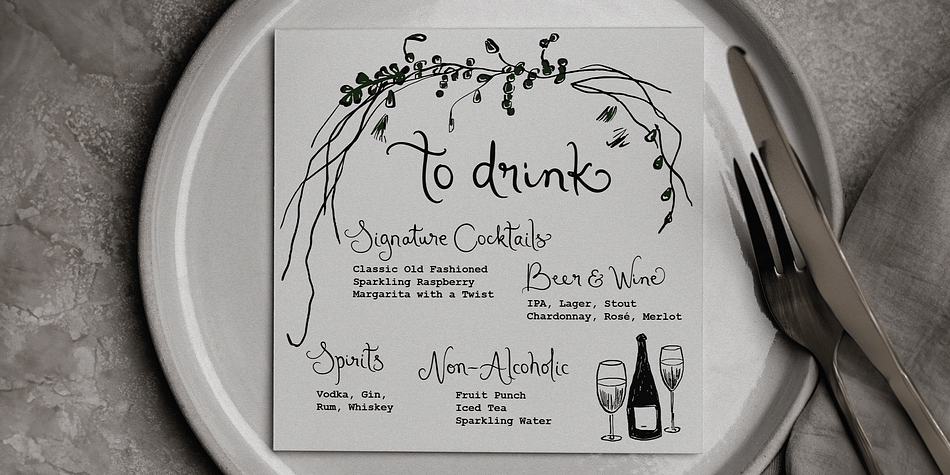 to drink
Signature Cocktails
Classic Old Fashioned
Sparkling Raspberry
Margarita with a Twist
Beer & Wine
IPA, Lager, Stout
Chardonnay, Rosé, Merlot
Spirits
Vodka, Gin,
Rum, Whiskey
Non-Alcoholic
Fruit Punch
Iced Tea
Sparkling Water